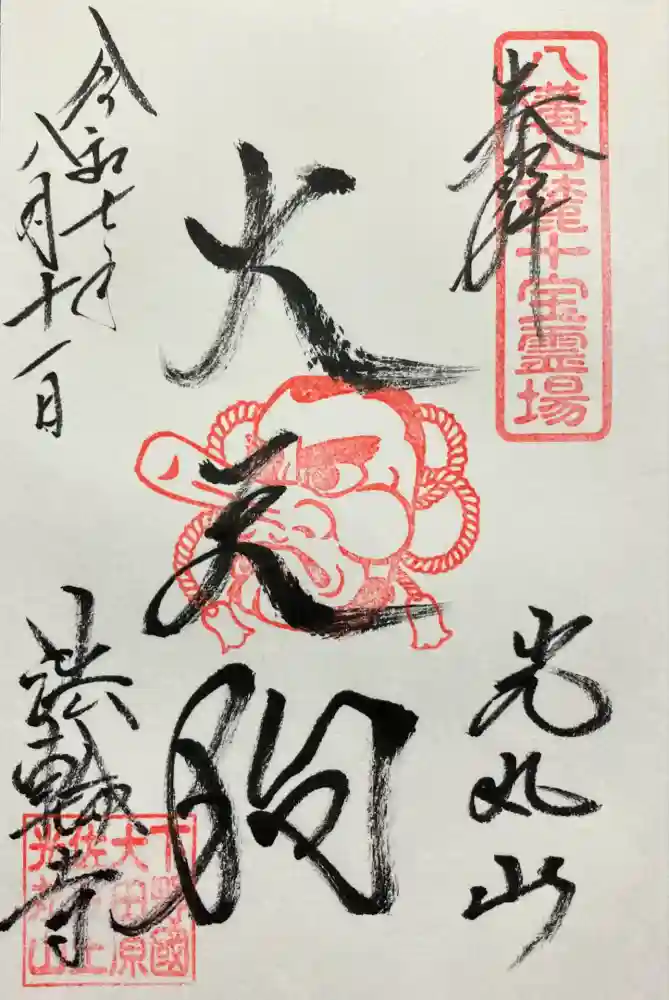 奉拝
八溝山麓十宝霊場
光丸山
大天狗
令和七年
八月十一日
法輪寺
下野國
大田原
佐良土
光丸山